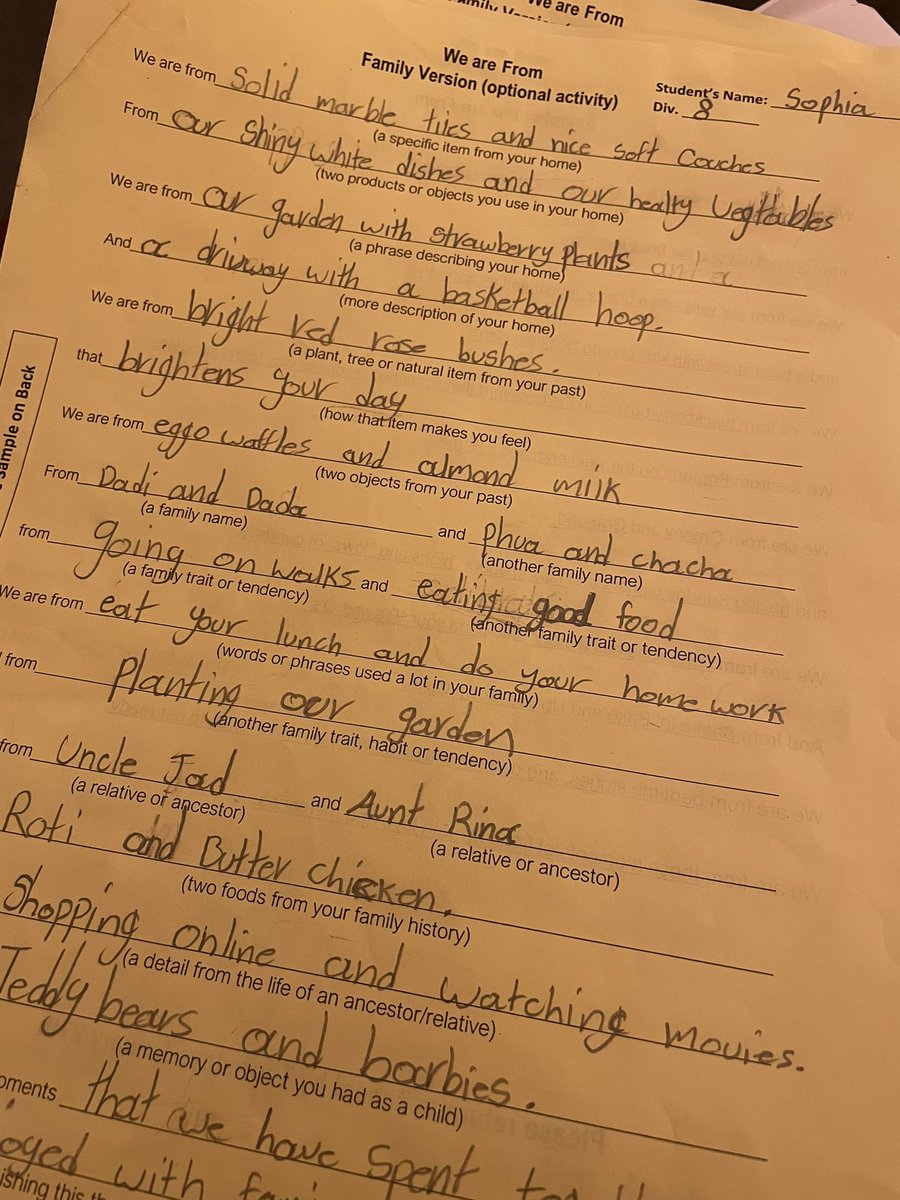 We are From
We are From
Family Version (optional activity)
Student's Name: Sophia
Div. 8
We are from Solid marble tiles and nice soft couches
(a specific item from your home)
From our shiny white dishes and our healty vegttables
(two products or objects you use in your home)
We are from our garden with strawberry plants and a
(a phrase describing your home)
And a drivway with a basketball hoop.
(more description of your home)
We are from bright red rose bushes.
(a plant, tree or natural item from your past)
that brightens your day
(how that item makes you feel)
We are from eggo waffles and almond milk
(two objects from your past)
From Dadi and Dada and Phua and chacha
(a family name) (another family name)
from going on walks and eating good food
(a family trait or tendency) (another family trait or tendency)
We are from eat your lunch and do your home work
(words or phrases used a lot in your family)
from planting our garden
(another family trait, habit or tendency)
from Uncle Jad and Aunt Rina
(a relative or ancestor) (a relative or ancestor)
Roti and Butter chicken.
(two foods from your family history)
Shopping online and watching movies.
(a detail from the life of an ancestor/relative)
Teddy bears and barbies.
(a memory or object you had as a child)
that we have spent
with
Sample on Back